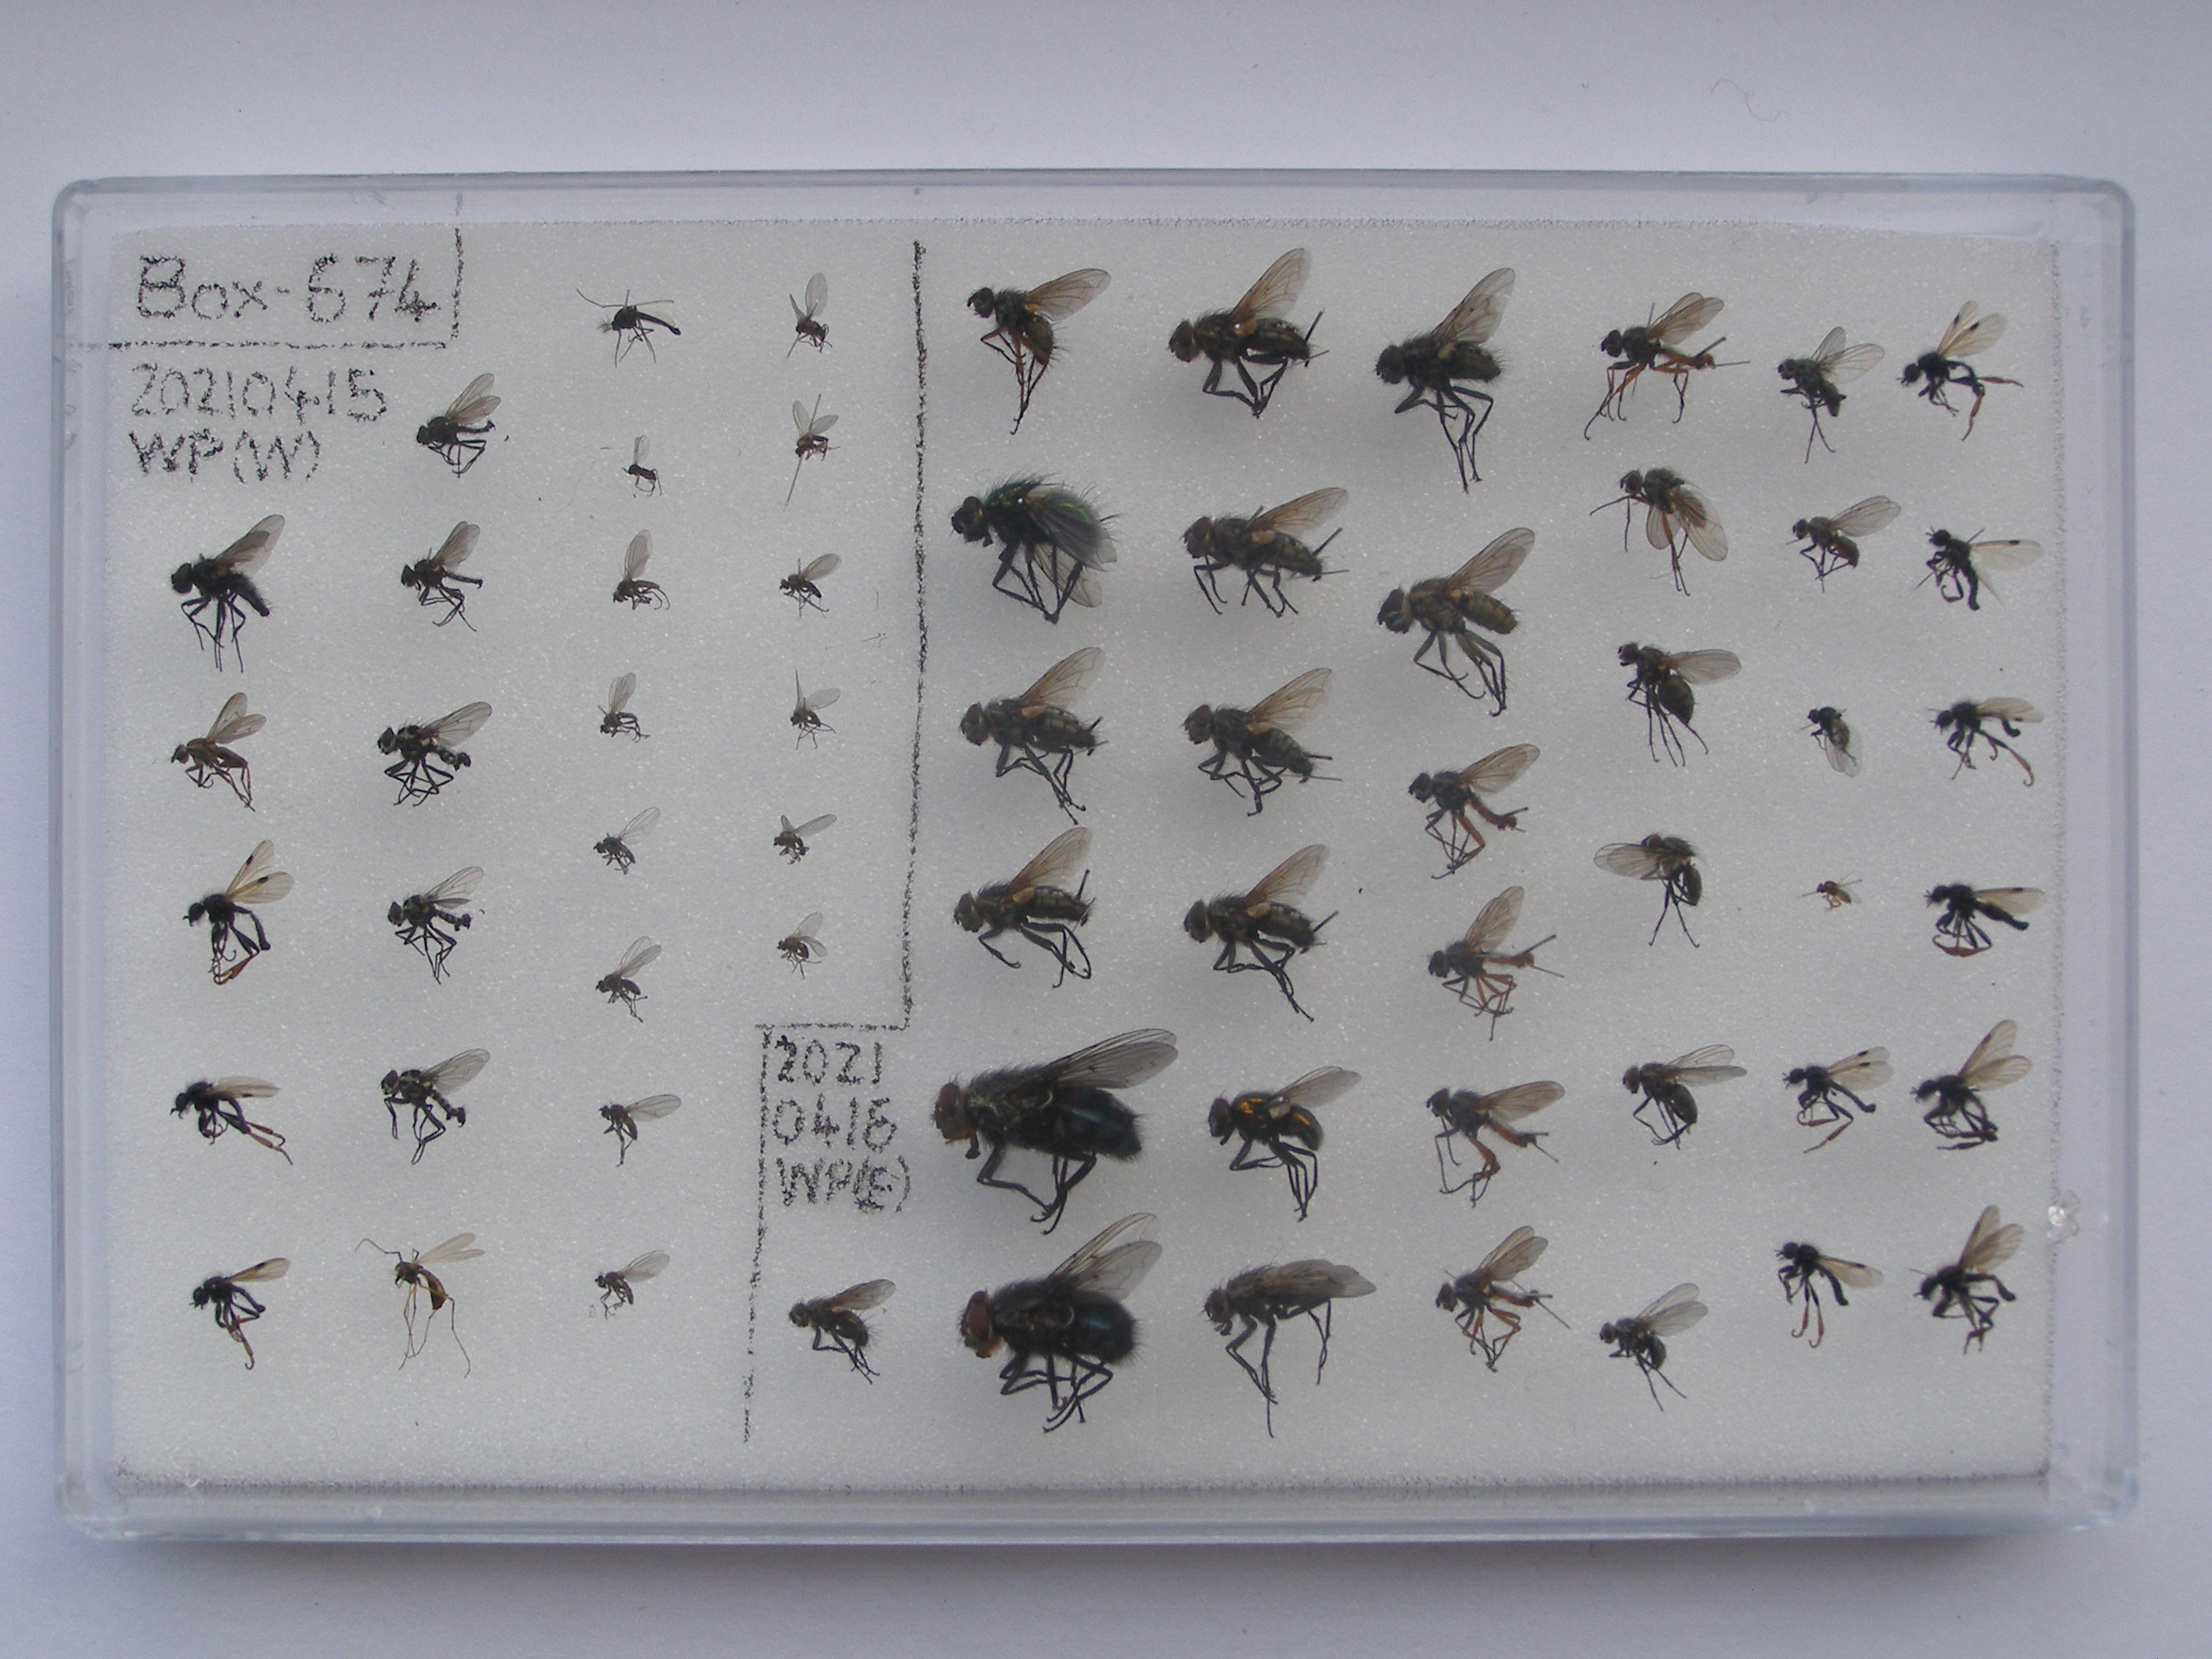 Box-674
20210415
WP(W)
2021
0416
WP(E)